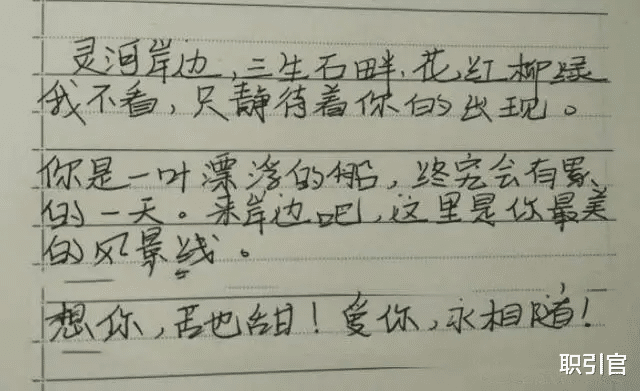 灵河岸边,三生石畔,花红柳绿
我不看,只静待着你的出现。
你是一叶漂浮的船,终究会有累
的一天。来岸边吧,这里是你最美
的风景线。
想你,苦也甜!爱你,永相随!
职引官